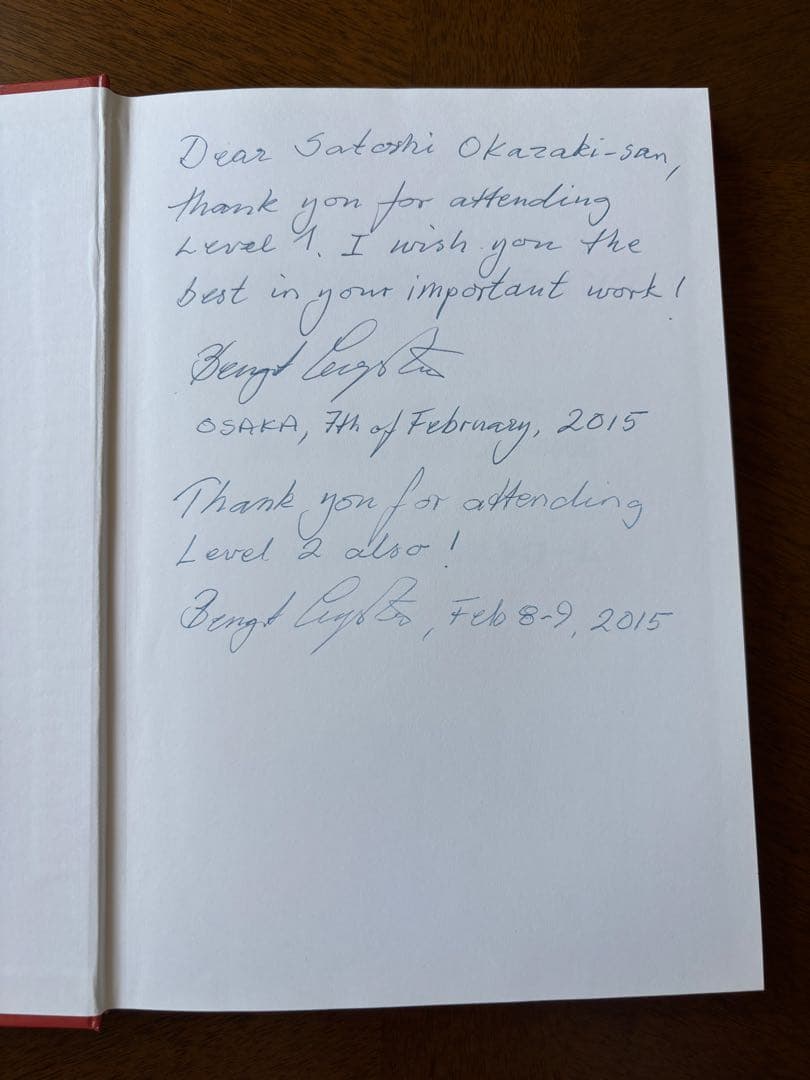 Dear Satoshi Okazaki-san,
thank you for attending
Level 1. I wish you the
best in your important work!
Bengt
OSAKA, 7th of February, 2015
Thank you for attending
Level 2 also!
Bengt , Feb 8-9, 2015